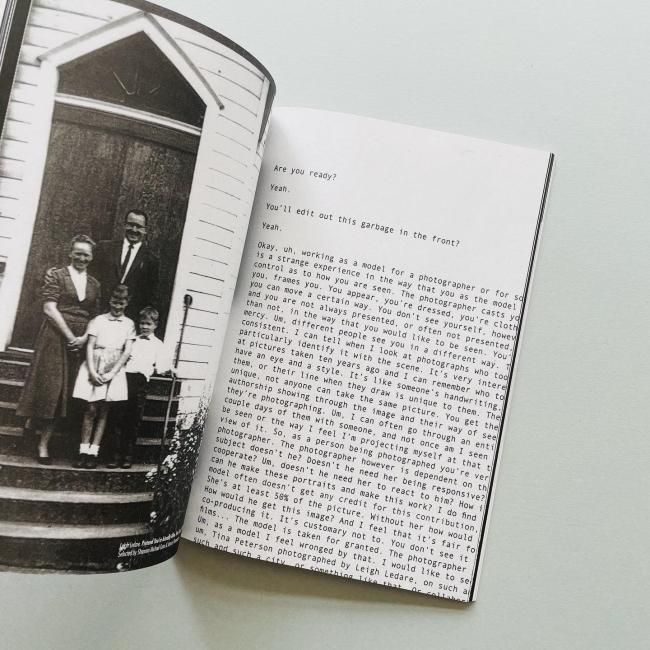 Are you ready?
Yeah.
You'll edit out this garbage in the front?
Yeah.
Okay, uh, working as a model for a photographer or for so
is a strange experience in the way that you as the model
control as to how you are seen. The photographer casts yo
you, frames you. You appear, you're dressed, you're cloth
you can move a certain way. You don't see yourself, howev
and you are not always presented, or often not presented
than not, in the way that you would like to be seen. You'
mercy. Um, different people see you in a different way. T
consistent. I can tell when I look at photographs who to
particularly identify it with the scene. It's very intere
at pictures taken ten years ago and I can remember who to
have an eye and a style. It's like someone's handwriting,
them, or their line when they draw is unique to them. The
unique, not anyone can take the same picture. You get the
authorship showing through the image and their way of see
they're photographing. Um, I can often go through an enti
couple days of them with someone, and not once am I seen
be seen or the way I feel I'm projecting myself at that t
view of it. So, as a person being photographed you're ver
photographer. The photographer however is dependent on th
subject doesn't he? Doesn't he need her being responsive?
cooperate? Um, doesn't he need her to react to him? How i
can he make these portraits and make this work? I do find
model often doesn't get any credit for this contribution
She's at least 50% of the picture. Without her how would
How would he get this image? And I feel that it's fair fo
co-producing it. It's customary not to. You don't see it
films... The model is taken for granted. The photographer
Um, as a model I feel wronged by that. I would like to se
um, Tina Peterson photographed by Leigh Ledare, on such a
such and such a city, or something like that. Or collabor
Leigh Ledare,
Selected by